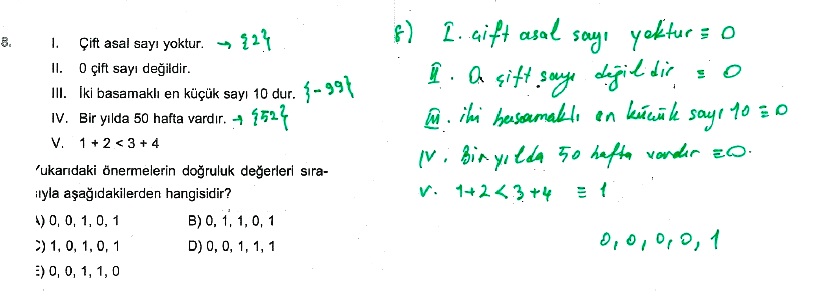 8. I. Çift asal sayı yoktur. → {2}
II. 0 çift sayı değildir.
III. İki basamaklı en küçük sayı 10 dur. {-99}
IV. Bir yılda 50 hafta vardır. → {52}
V. 1 + 2 < 3 + 4
Yukarıdaki önermelerin doğruluk değerleri sıra-
sıyla aşağıdakilerden hangisidir?
A) 0, 0, 1, 0, 1 B) 0, 1, 1, 0, 1
C) 1, 0, 1, 0, 1 D) 0, 0, 1, 1, 1
E) 0, 0, 1, 1, 0
8) I. çift asal sayı yoktur ≡ 0
II. 0 çift sayı değildir ≡ 0
III. iki basamaklı en küçük sayı 10 ≡ 0
IV. Bir yılda 50 hafta vardır ≡ 0.
V. 1+2 < 3+4 ≡ 1
0, 0, 0, 0, 1